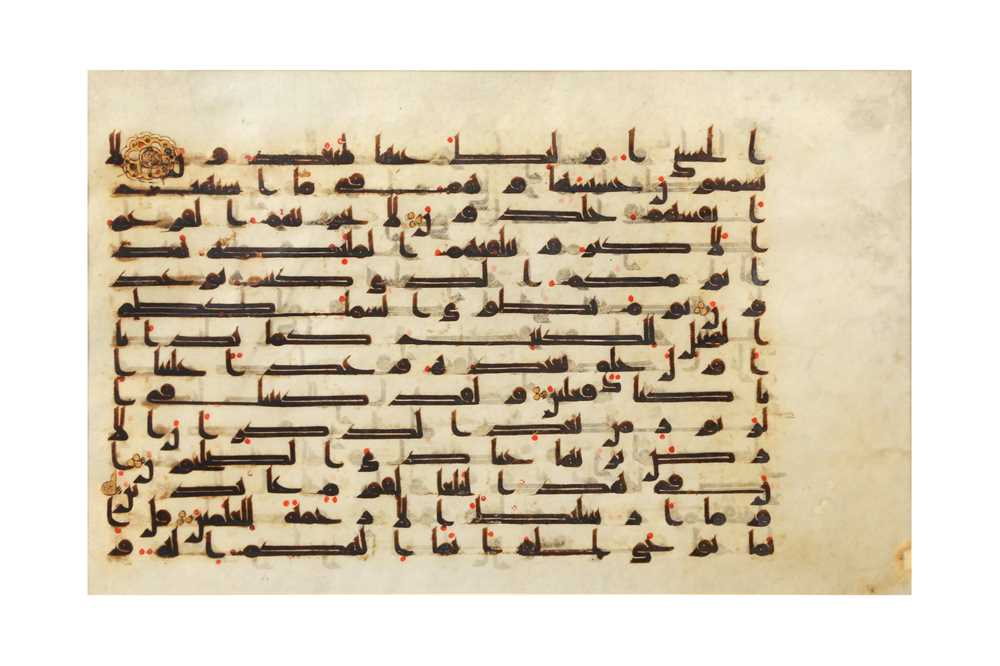 الحسنى اولئك عنها مبعدون لا
يسمعون حسيسها وهم في ما اشتهت
انفسهم خلدون لا يحزنهم الفزع
الاكبر وتتلقيهم الملئكة هذا
يومكم الذي كنتم توعد
ون يوم نطوي السما كطي
السجل للكتب كما بدانا
اول خلق نعيده وعدا علينا ا
نا كنا فعلين ولقد كتبنا في ا
لزبور من بعد الذكر ان الا
رض يرثها عبادي الصلحون ا
ن في هذا لبلغا لقوم عبدين
وما ارسلنك الا رحمة للعلمين قل ا
نما يوحى الي انما الهكم اله و